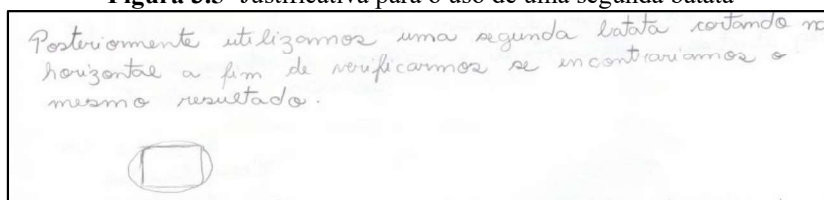 Figura 5.3 Justificativa para o uso de uma segunda batata
Posteriormente utilizamos uma segunda batata cortando na
horizontal a fim de verificarmos se encontrariamos o
mesmo resultado.